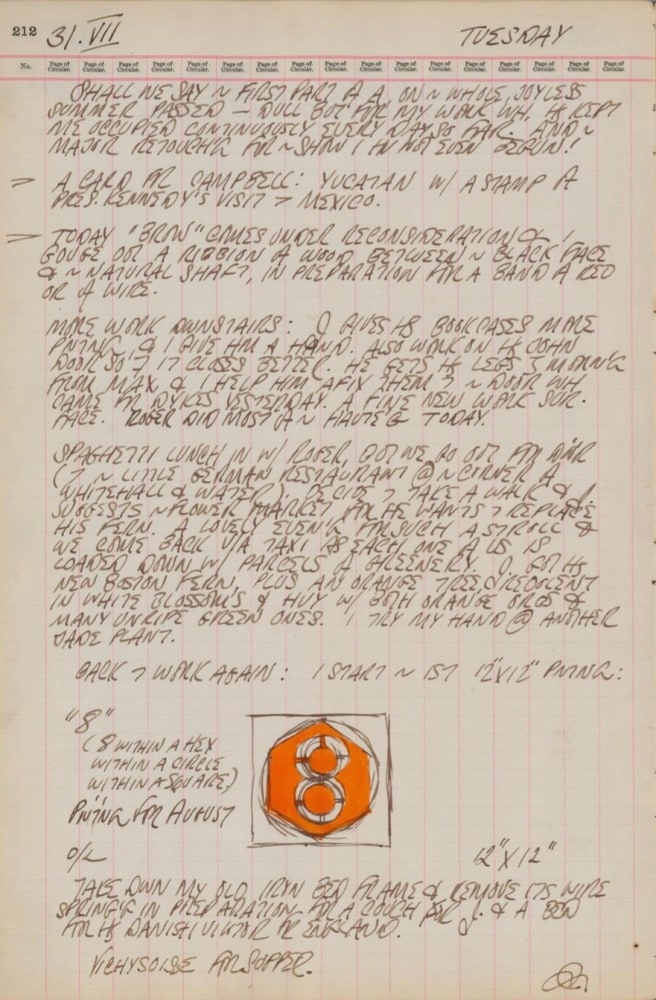 212 31.VII TUESDAY
No. Page of Circular. Page of Circular. Page of Circular. Page of Circular. Page of Circular. Page of Circular. Page of Circular. Page of Circular. Page of Circular. Page of Circular. Page of Circular. Page of Circular. Page of Circular. Page of Circular. Page of Circular. Page of Circular. Page of Circular.
SHALL WE SAY ~ FIRST PART A A. ON ~ WHOLE, JOYLESS
SUMMER PASSED — DULL BUT FOR MY WORK WH. H KEPT
ME OCCUPIED CONTINUOUSLY EVERY DAY SO FAR. AND ~
MAJOR RETOUCH'G FOR ~ SHOW I HV NOT EVEN BEGUN!
A CARD FR CAMPBELL: YUCATAN W/ A STAMP A
PRES. KENNEDY'S VISIT > MEXICO.
TODAY "BROW" COMES UNDER RECONSIDERATION & I
GOUGE OUT A RIBBON A WOOD BETWEEN ~ BLACK FACE
& ~ NATURAL SHAFT, IN PREPARATION FOR A BAND A RED
OR A WIRE.
MORE WORK DWNSTAIRS: J GIVES HS BOOKCASES MORE
PNTNG, & I GIVE HM A HAND. ALSO WORK ON HS JOHN
DOOR SO 7 IT CLOSES BETTER. HE GETS HS LEGS MORN'G
FROM MAX & I HELP HIM AFIX THEM 7 ~ DOOR WH
CAME FR DYKES YESTERDAY. A FINE NEW WORK SUR-
FACE. ROGER DID MOST A ~ HAULG TODAY.
SPAGHETTI LUNCH IN W/ ROGER, BUT WE GO OUT FOR DNR
(7 ~ LITTLE GERMAN RESTAURANT @ ~ CORNER A
WHITEHALL & WATER). DECIDE 7 TAKE A WALK & J.
SUGGESTS ~ FLOWER MARKET FOR HE WANTS 7 REPLACE
HIS FERN. A LOVELY EVEN'G FOR SUCH A STROLL &
WE COME BACK VIA TAXI AS EACH ONE A US IS
LOADED DOWN W/ PARCELS A GREENERY. J. GOT HS
NEW BOSTON FERN, PLUS AN ORANGE TREE, REDOLENT
IN WHITE BLOSSOMS & HVY W/ BOTH ORANGE ORBS &
MANY UNRIPE GREEN ONES. I TRY MY HAND @ ANOTHER
JADE PLANT.
BACK 7 WORK AGAIN: I START ~ 1ST 12"X12" PNTNG:
"8"
(8 WITHIN A HEX
WITHIN A CIRCLE
WITHIN A SQUARE)
PNTNG FOR AUGUST
8
O/C 12"X12"
TAKE DWN MY OLD IRON BED FRAME & REMOVE ITS WIRE
SPRING'G IN PREPARATION FOR A COUCH FOR J. & A BED
FOR HS DANISH VISITOR FR ENGLAND.
VICHYSOISE FOR SUPPER.